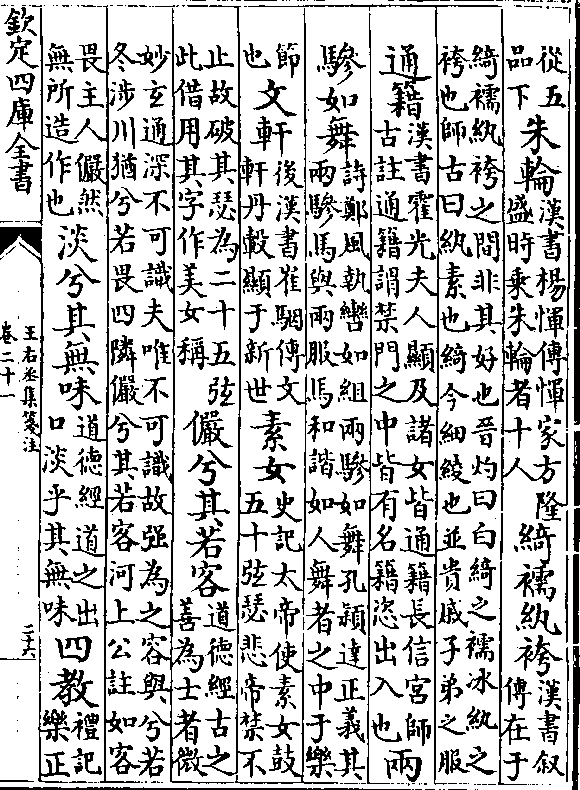 從五品下朱輪漢書楊惲傳惲家方隆盛時乘朱輪者十人綺襦紈袴漢書叙傳在于
綺襦紈袴之間非其好也晉灼曰白綺之襦冰紈之袴也師古曰紈素也綺今細綾也並貴戚子弟之服
通籍漢書霍光夫人顯及諸女皆通籍長信宮師古註通籍謂禁門之中皆有名籍恣出入也兩
驂如舞詩鄭風執轡如組兩驂如舞孔穎達正義其兩驂馬與兩服馬和諧如人舞者之中于樂
節也文軒後漢書崔駰傳文軒丹轂顯于新世素女史記太帝使素女鼓五十弦瑟悲帝禁不
止故破其瑟為二十五弦此借用其字作美女稱儼兮其若客道德經古之善為士者微
妙玄通深不可識夫唯不可識故强為之容與兮若冬涉川猶兮若畏四隣儼兮其若客河上公註如客
畏主人儼然無所造作也淡兮其無味道德經道之出口淡乎其無味四教禮記樂正
欽定四庫全書
王右丞集箋注
卷二十一
二十六